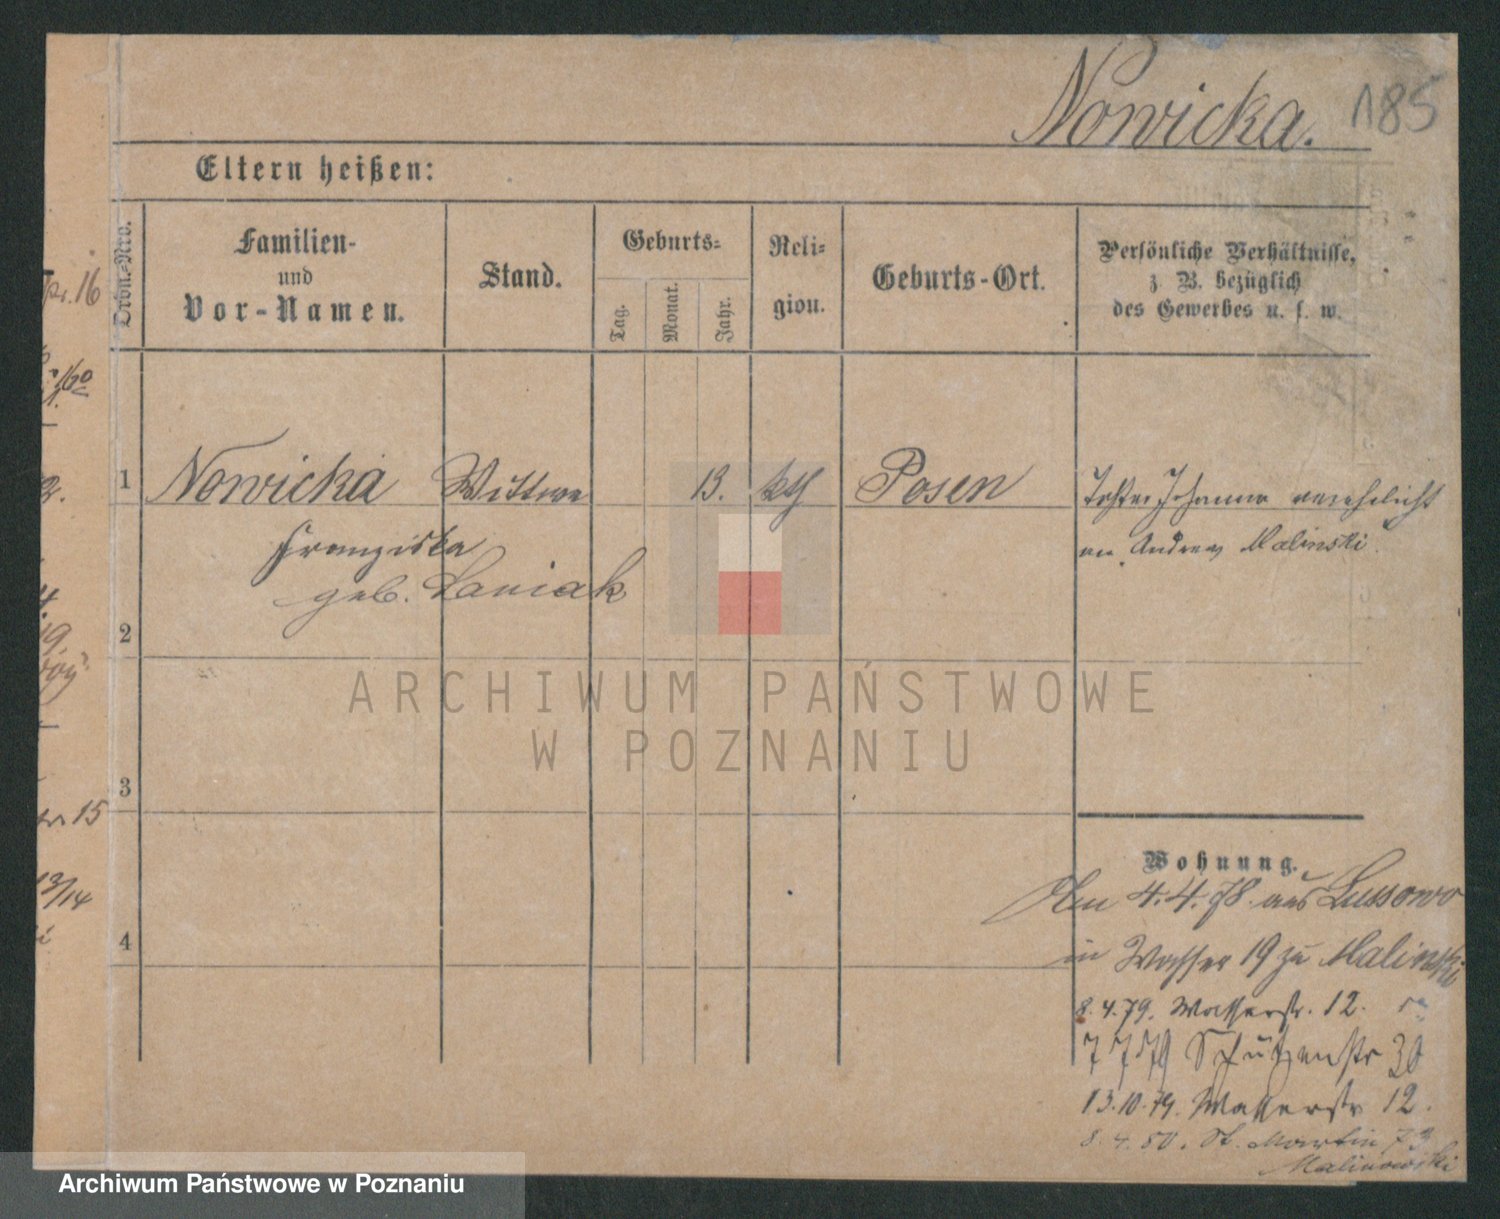 Nowicka. 185
Eltern heißen:
Ordn.-Nro.
Familien-
und
Vor-Namen.
Stand.
Geburts-
Tag.
Monat.
Jahr.
Reli-
gion.
Geburts-Ort.
Persönliche Verhältnisse,
z. B. bezüglich
des Gewerbes u. s. w.
16
1 Nowicka Wittwe 13. kth Posen
Franziska
geb. Laniak
Tochter Johanna verehelicht
an Andreas Malinski.
2
3
15
13/14
4
Wohnung.
Am 4.4.78. aus Lussowo
in Wasser 19 zu Malinski
8.4.79. Wasserstr. 12.
7 7 79 Schützenstr 30
13.10.79. Wasserstr 12.
8.4.80. St. Martin 73
Malinowski
ARCHIWUM PAŃSTWOWE
W POZNANIU
Archiwum Państwowe w Poznaniu